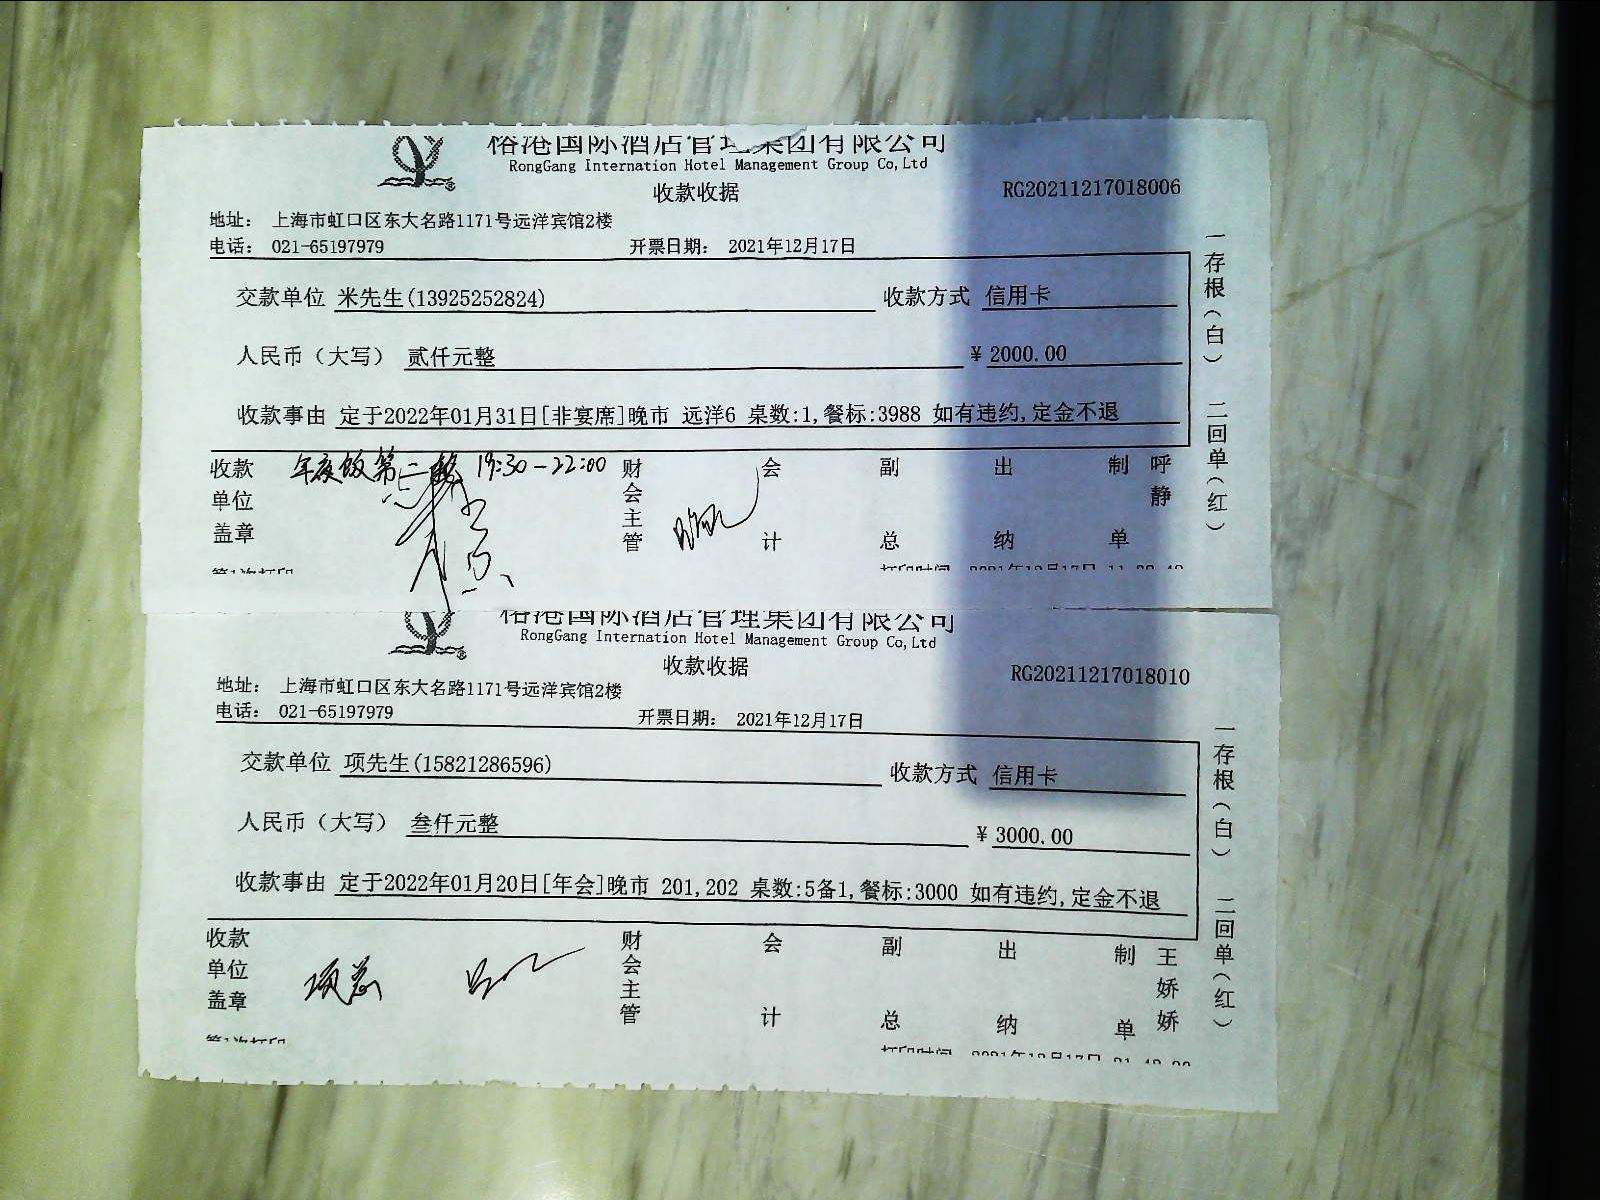 榕港国际酒店管理集团有限公司
RongGang Internation Hotel Management Group Co,Ltd
收款收据
RG20211217018006
地址： 上海市虹口区东大名路1171号远洋宾馆2楼
电话： 021-65197979 开票日期： 2021年12月17日
交款单位 米先生(13925252824) 收款方式 信用卡
人民币（大写） 贰仟元整 ¥ 2000.00
收款事由 定于2022年01月31日[非宴席]晚市 远洋6 桌数:1,餐标:3988 如有违约,定金不退
年夜饭第二 19:30-22:00
收款单位盖章 财会主管 会计 副总 出纳 制单 呼静
一存根（白） 二回单（红）
第1次打印 打印时间 2021年12月17日
榕港国际酒店管理集团有限公司
RongGang Internation Hotel Management Group Co,Ltd
收款收据
RG20211217018010
地址： 上海市虹口区东大名路1171号远洋宾馆2楼
电话： 021-65197979 开票日期： 2021年12月17日
交款单位 项先生(15821286596) 收款方式 信用卡
人民币（大写） 叁仟元整 ¥ 3000.00
收款事由 定于2022年01月20日[年会]晚市 201,202 桌数:5备1,餐标:3000 如有违约,定金不退
收款单位盖章 项总 财会主管 会计 副总 出纳 制单 王娇娇
一存根（白） 二回单（红）
第1次打印 打印时间 2021年12月17日